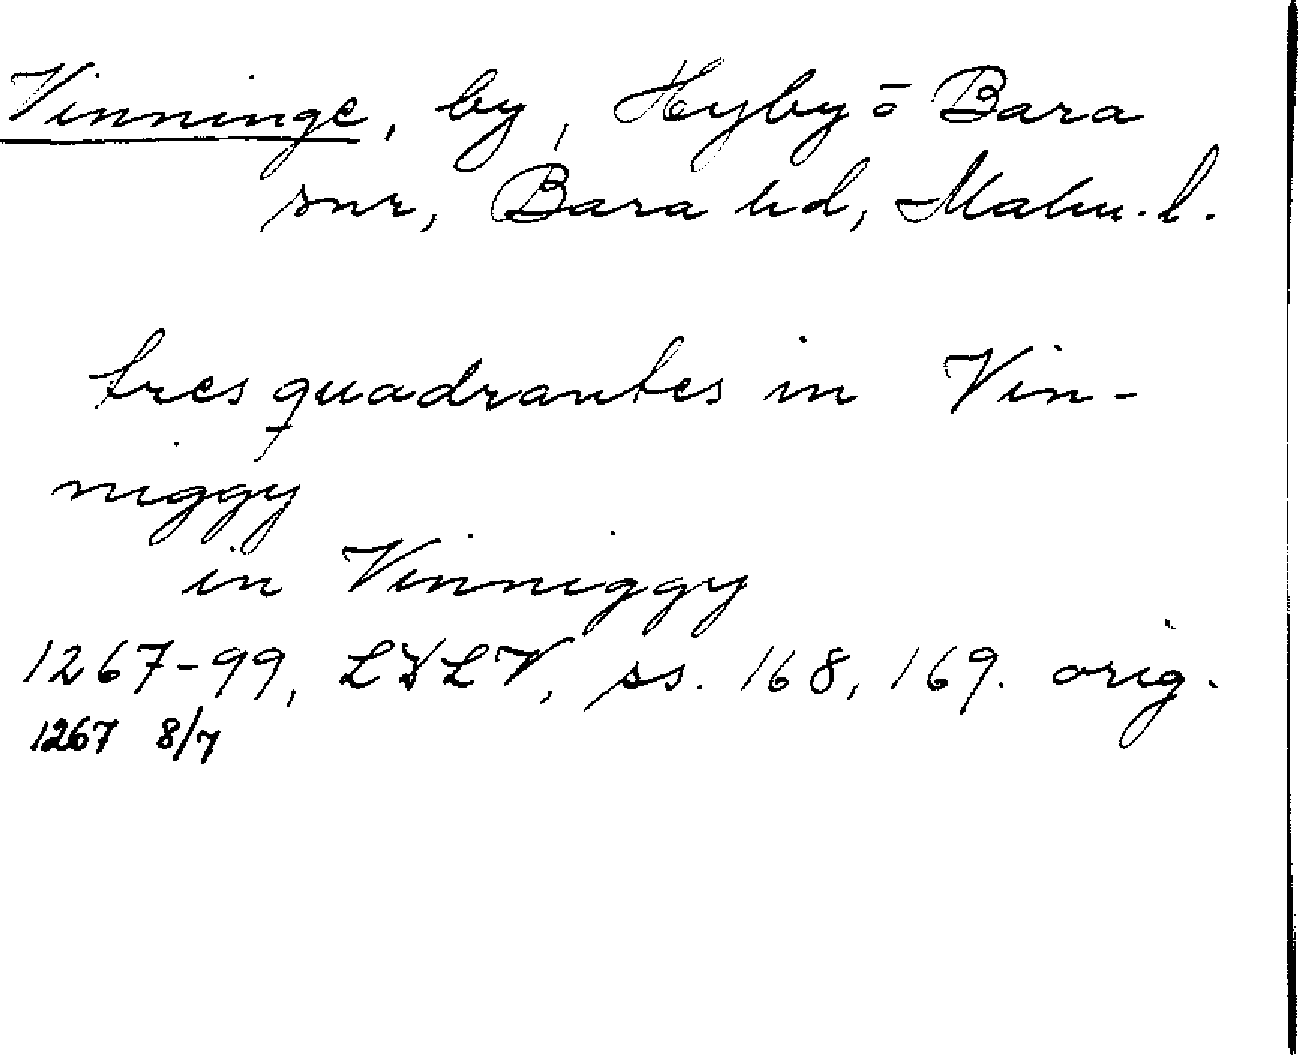 Vinninge, by, Hyby o Bara
snr, Bara hd, Malm. l.
tres quadrantes in Vin-
niggy
in Vinniggy
1267-99, LDLV, ss. 168, 169. orig.
1267 8/7